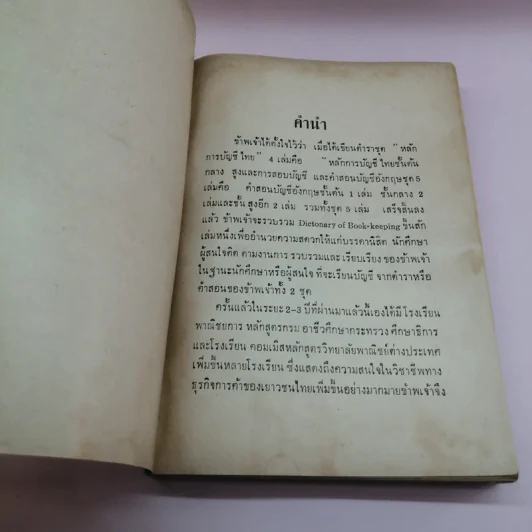 คำนำ
ข้าพเจ้าได้ตั้งใจไว้ว่า เมื่อได้เขียนตำราชุด "หลัก
การบัญชีไทย" 4 เล่มคือ "หลักการบัญชีไทยชั้นต้น
กลาง สูงและการสอบบัญชี และคำสอนบัญชีอังกฤษชุด 5
เล่มคือ คำสอนบัญชีอังกฤษชั้นต้น 1 เล่ม ชั้นกลาง 2
เล่มและชั้นสูงอีก 2 เล่ม รวมทั้งชุด 5 เล่ม เสร็จสิ้นลง
แล้ว ข้าพเจ้าจะรวบรวม Dictonary of Book-keeping ขึ้นสัก
เล่มหนึ่งเพื่ออำนวยความสดวกให้แก่บรรดานิสิต นักศึกษา
ผู้สนใจคิด ตามงานการ รวบรวมและ เรียบเรียง ของข้าพเจ้า
ในฐานะนักศึกษาหรือผู้สนใจ ที่จะเรียนบัญชี จากตำราหรือ
คำสอนของข้าพเจ้าทั้ง 2 ชุด
ครั้นแล้วในระยะ 2-3 ปีที่ผ่านมาแล้วนี้เองได้มี โรงเรียน
พาณิชยการ หลักสูตรกรม อาชีวศึกษากระทรวง ศึกษาธิการ
และโรงเรียน คอมเมิสหลักสูตรวิทยาลัยพาณิชย์ต่างประเทศ
เพิ่มขึ้นหลายโรงเรียน ซึ่งแสดงถึงความสนใจในวิชาชีพทาง
ธุรกิจการค้าของเยาวชนไทยเพิ่มขึ้นอย่างมากมายข้าพเจ้าจึง